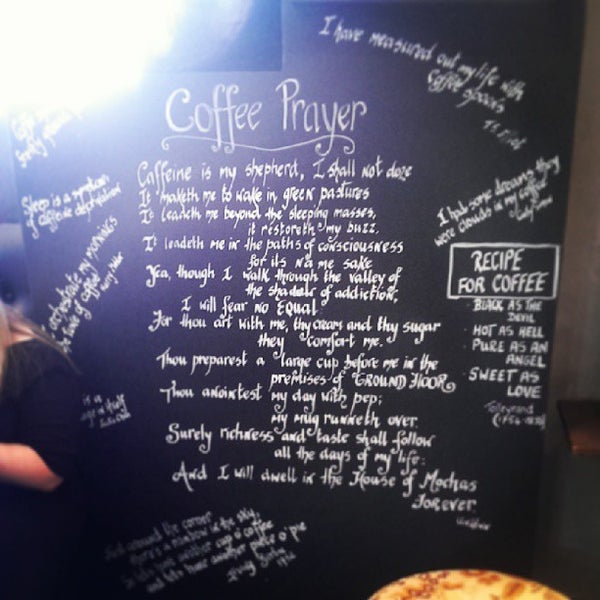 Coffee Prayer
Caffeine is my shepherd, I shall not doze
It maketh me to wake in green pastures
It leadeth me beyond the sleeping masses,
it restoreth my buzz.
It leadeth me in the paths of consciousness
for its name sake
Yea, though I walk through the valley of
the shadow of addiction,
I will fear no EQUAL
For thou art with me, thy cream and thy sugar
they comfort me.
Thou preparest a large cup before me in the
premises of GROUND FLOOR
Thou anointest my day with pep;
my mug runneth over.
Surely richness and taste shall follow
all the days of my life:
And I will dwell in the House of Mochas
Forever.
I have measured out my life with
coffee spoons
I had some dreams, they
were clouds in my coffee
RECIPE
FOR COFFEE
· BLACK AS THE
DEVIL
· HOT AS HELL
· PURE AS AN
ANGEL
· SWEET AS
LOVE
Talleyrand
Sleep is a symptom
of caffeine deprivation
orchestrate my mornings
tune of coffee
is a
in itself
around the corner
there's a rainbow in the sky,
another cup o' coffee
and let's have another piece o' pie
Irving Berlin